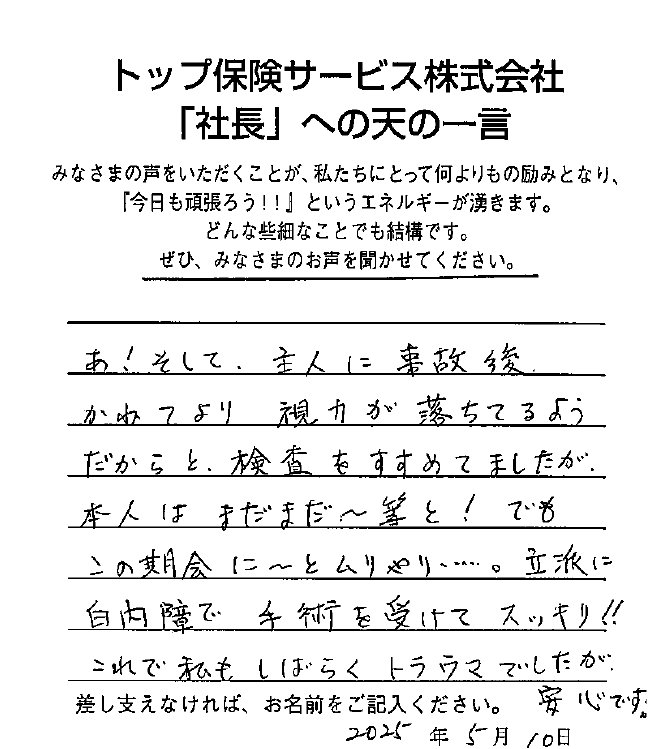 トップ保険サービス株式会社
「社長」への天の一言
みなさまの声をいただくことが、私たちにとって何よりもの励みとなり、
『今日も頑張ろう!!』というエネルギーが湧きます。
どんな些細なことでも結構です。
ぜひ、みなさまのお声を聞かせてください。
あ!そして、主人に事故後、
かねてより 視力が落ちてるよう
だからと、検査をすすめてましたが、
本人は まだまだ〜 と! でも
この期会に〜とムリやり……。立派に
白内障で 手術を受けて スッキリ!!
これで私も しばらく トラウマでしたが、
差し支えなければ、お名前をご記入ください。 安心です。
2025 年 5 月 10 日